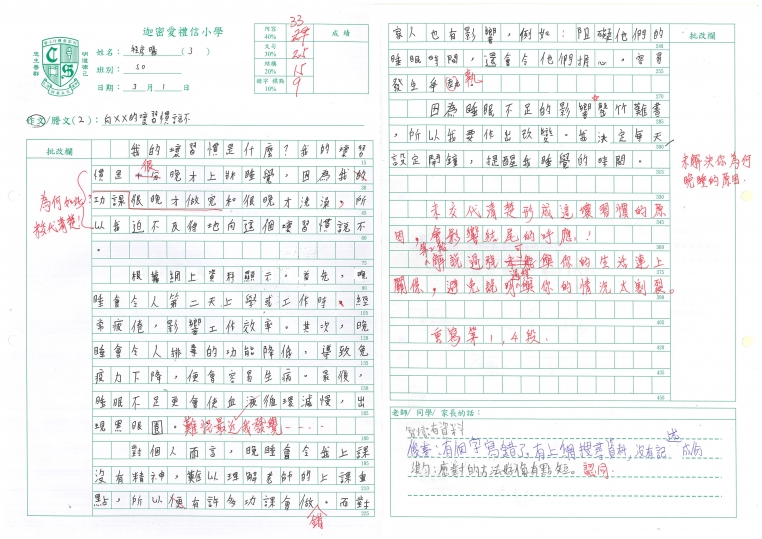 迦密愛禮信小學
姓名：
(3)
班別：5D
日期：3月1日
內容 40%
文句 30%
結構 20%
錯字 標點 10%
33
29
25
15
9
成績
作文/謄文(2)：向XX的壞習慣說不
批改欄
我的壞習慣是什麼？我的壞習
慣是很晚才上牀睡覺，因為我的
功課很晚才做完和很晚才洗澡，所
以我迫不及待地向這個壞習慣說不
。
根據網上資料顯示。首先，晚
睡會令人第二天上學或工作時，經
常疲倦，影響工作效率。其次，晚
睡會令人排毒的功能降低，導致免
疫力下降，便會容易生病。最後，
睡眠不足更會使血液循環減慢，出
現黑眼圈。難怪最近我發覺----
對個人而言，晚睡會令我上課
沒有精神，難以理解老師的上課重
點，所以便有許多功課會做。而對
錯
為何如此？
較代清楚！
家人也有影響，例如：阻礙他們的
睡眠時間，還會令他們担心，容易
發生爭執。
因為睡眠不足的影響罄竹難書
，所以我要作出改變。我決定每天
設定鬧鐘，提醒我睡覺的時間。
批改欄
未解決你為何
晚睡的原因。
未交代清楚形成這壞習慣的原
因，會影響結尾的呼應！
解說過程
可
與你的生活連上
關係，避免說明與你的情況太割裂。
重寫第1,4段.
老師/ 同學/ 家長的話：
有資料
俊熹：有個字寫錯了，有上網搜尋資料，沒有記
述
應對的方法好像有點短。認同